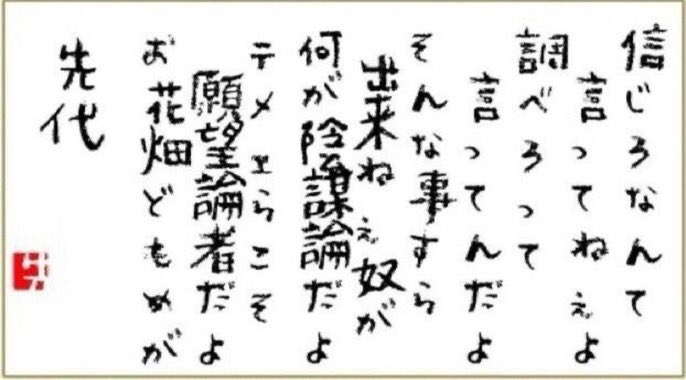 信じろなんて
言ってねぇよ
調べろって
言ってんだよ
そんな事すら
出来ねぇ奴が
何が陰謀論だよ
テメエらこそ
願望論者だよ
お花畑どもめが
先代